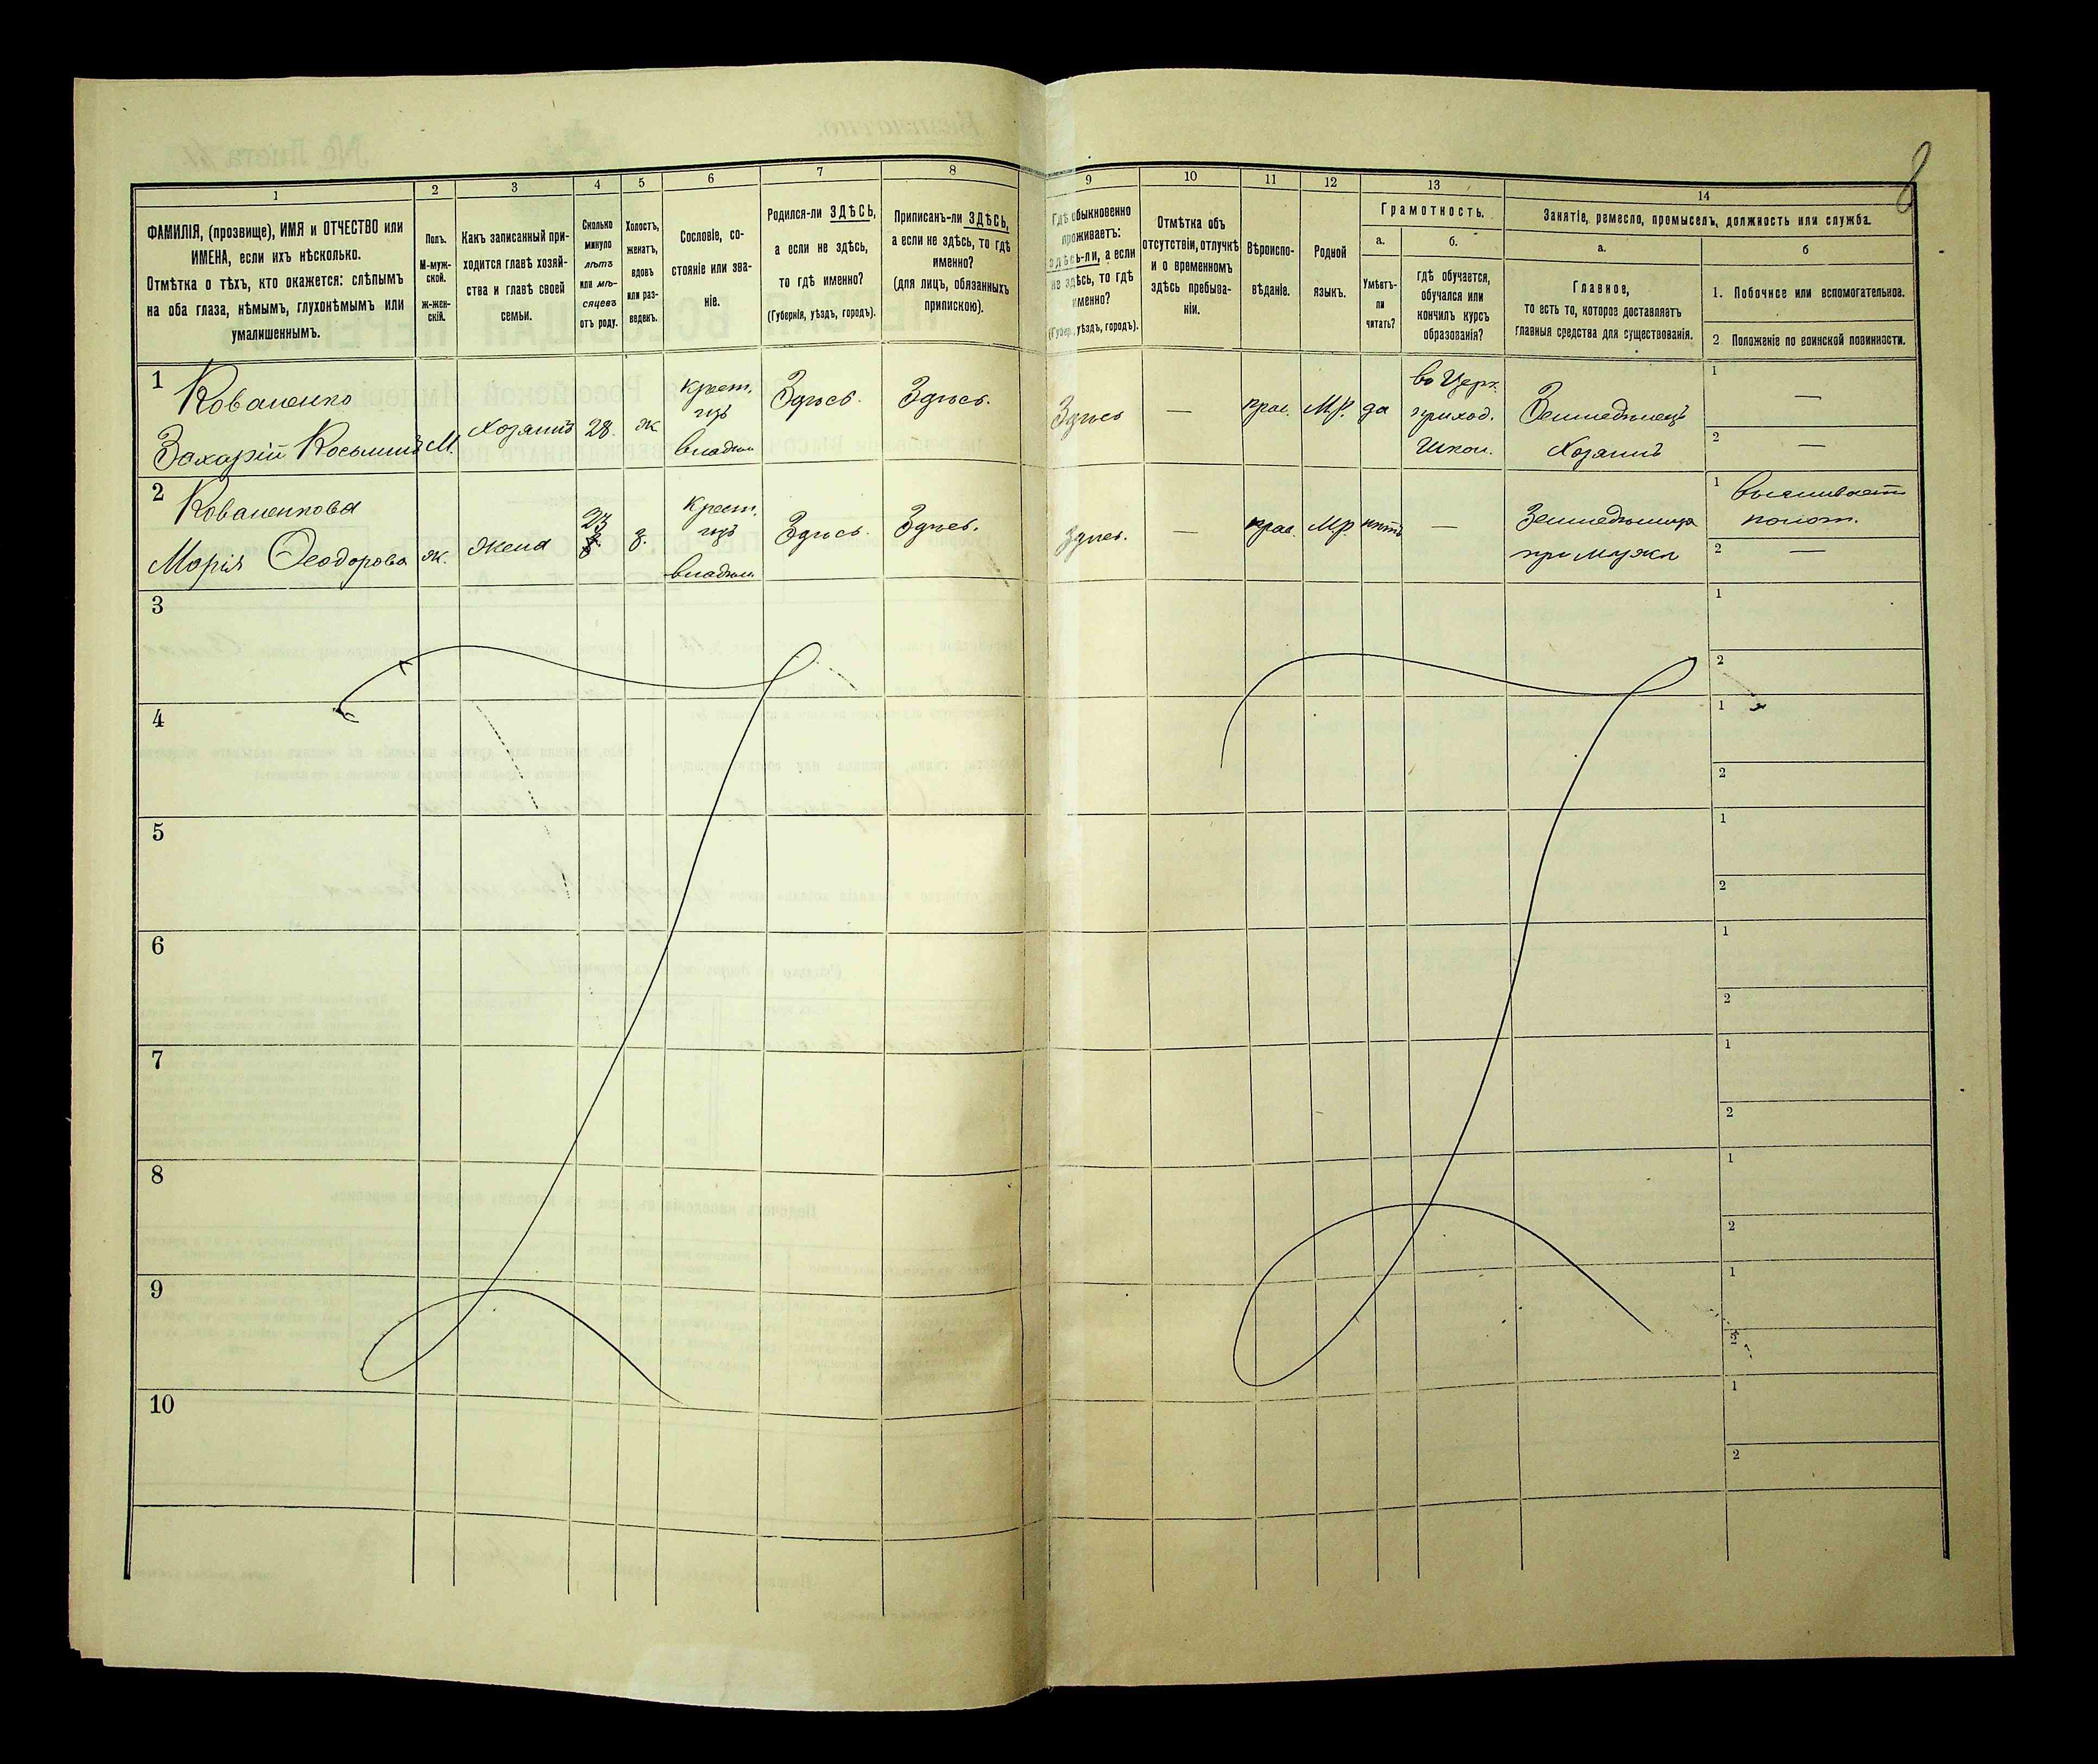 8
1
2
3
4
5
6
7
8
9
10
11
12
13
14
ФАМИЛІЯ, (прозвище), ИМЯ и ОТЧЕСТВО или
ИМЕНА, если ихъ нѣсколько.
Отмѣтка о тѣхъ, кто окажется: слѣпымъ
на оба глаза, нѣмымъ, глухонѣмымъ или
умалишеннымъ.
Полъ.
М-муж-
ской.
ж-жен-
скій.
Какъ записанный при-
ходится главѣ хозяй-
ства и главѣ своей
семьи.
Сколько
минуло
лѣтъ
или мѣ-
сяцевъ
отъ роду.
Холостъ,
женатъ,
вдовъ
или раз-
веденъ.
Сословіе, со-
стояніе или зва-
ніе.
Родился-ли ЗДѢСЬ,
а если не здѣсь,
то гдѣ именно?
(Губернія, уѣздъ, городъ).
Приписанъ-ли ЗДѢСЬ,
а если не здѣсь, то гдѣ
именно?
(для лицъ, обязанныхъ
припискою).
Гдѣ обыкновенно
проживаетъ:
здѣсь-ли, а если
не здѣсь, то гдѣ
именно?
(Губер., уѣздъ, городъ).
Отмѣтка объ
отсутствіи, отлучкѣ
и о временномъ
здѣсь пребыва-
ніи.
Вѣроиспо-
вѣданіе.
Родной
языкъ.
Грамотность.
а.
б.
Умѣетъ-
ли
читать?
гдѣ обучается,
обучался или
кончилъ курсъ
образованія?
Занятіе, ремесло, промыселъ, должность или служба.
а.
б
Главное,
то есть то, которое доставляетъ
главныя средства для существованія.
1. Побочное или вспомогательное.
2 Положеніе по воинской повинности.
1
Коваленко
Захарій Косьминъ
М.
Хозяинъ
28
ж
Крест.
изъ
владѣл.
Здѣсь.
Здѣсь.
Здѣсь
—
прав.
М.Р.
да
во Церк.
приход.
Школ.
Земледѣлецъ
Хозяинъ
1
—
2
—
2
Коваленкова
Марія Ѳеодорова
ж.
Жена
23
з.
Крест.
изъ
владѣл.
Здѣсь.
Здѣсь.
Здѣсь.
—
прав.
М.р.
нѣтъ
—
Земледѣлица
при мужѣ
1
полот.
2
—
3
1
2
4
1
2
5
1
2
6
1
2
7
1
2
8
1
2
9
1
2
10
1
2